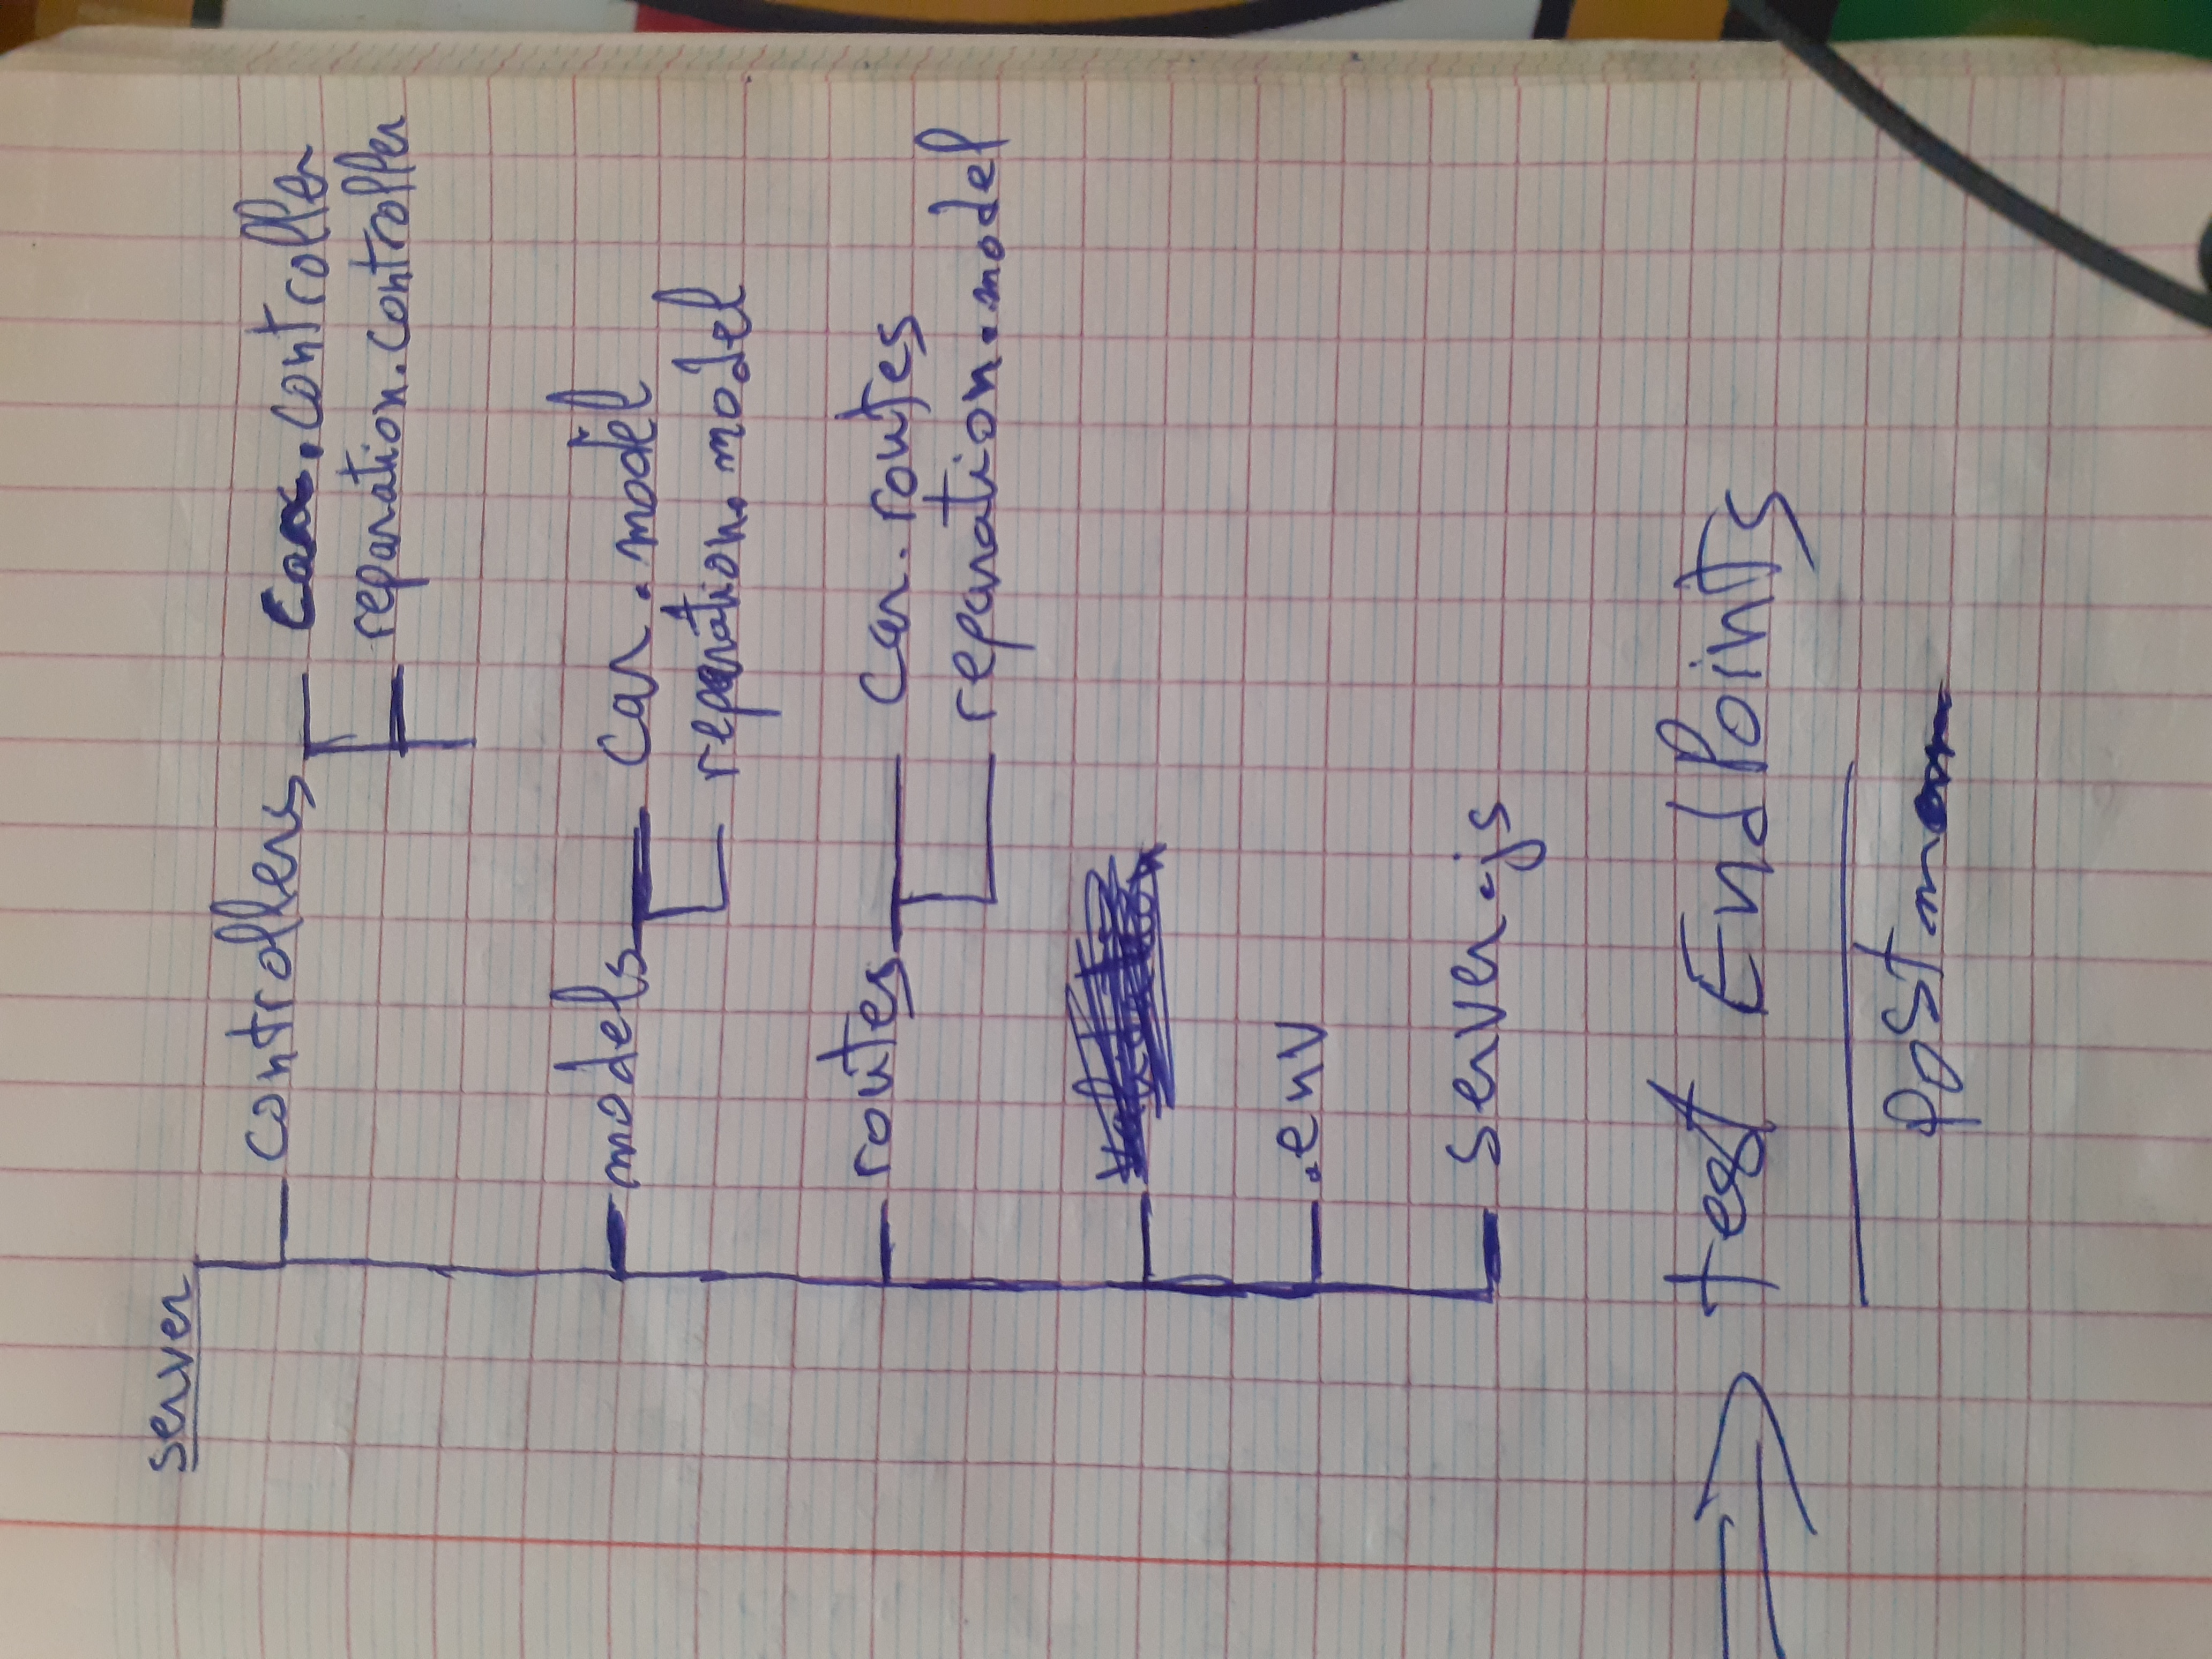 server
controllers
car.controller
reparation.controller
models
car.model
reparation.model
routes
car.routes
reparation.model
.env
server.js
test EndPoints
postman